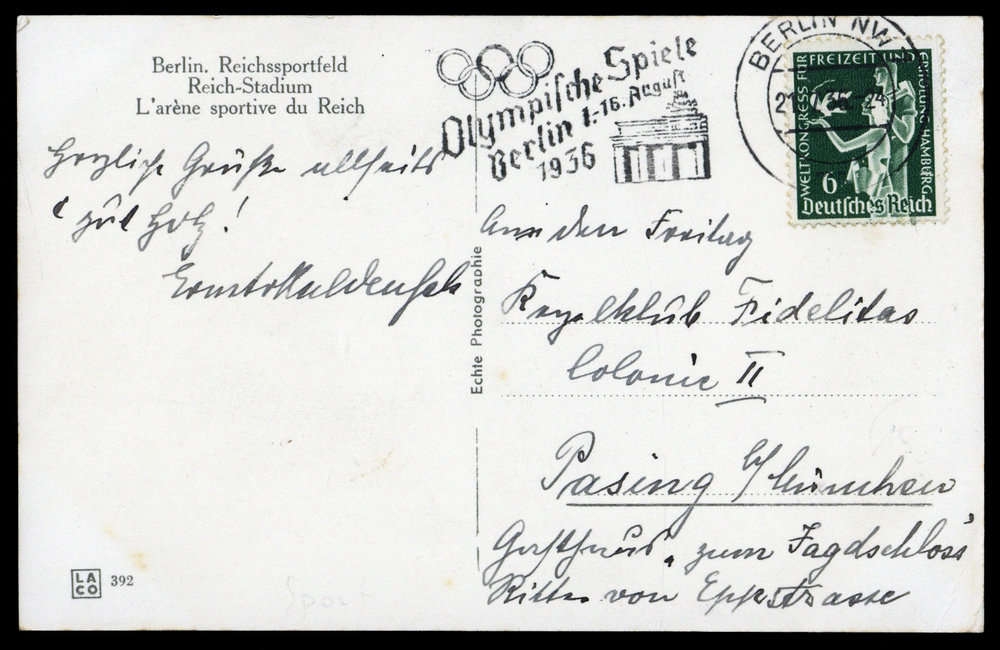 Berlin. Reichssportfeld
Reich-Stadium
L'arène sportive du Reich
Olympische Spiele
Berlin 1.-16. August
1936
BERLIN NW
WELTKONGRESS FÜR FREIZEIT UND ERHOLUNG HAMBURG
6
Deutsches Reich
Herzliche Grüße allseits
"gut Holz!
Echte Photographie
An den Freitag
Kegelklub Fidelitas
Colonie II
Pasing b/München
Gasthaus „zum Jagdschloss"
Ritter von Eppstrasse
LACO 392
Sport